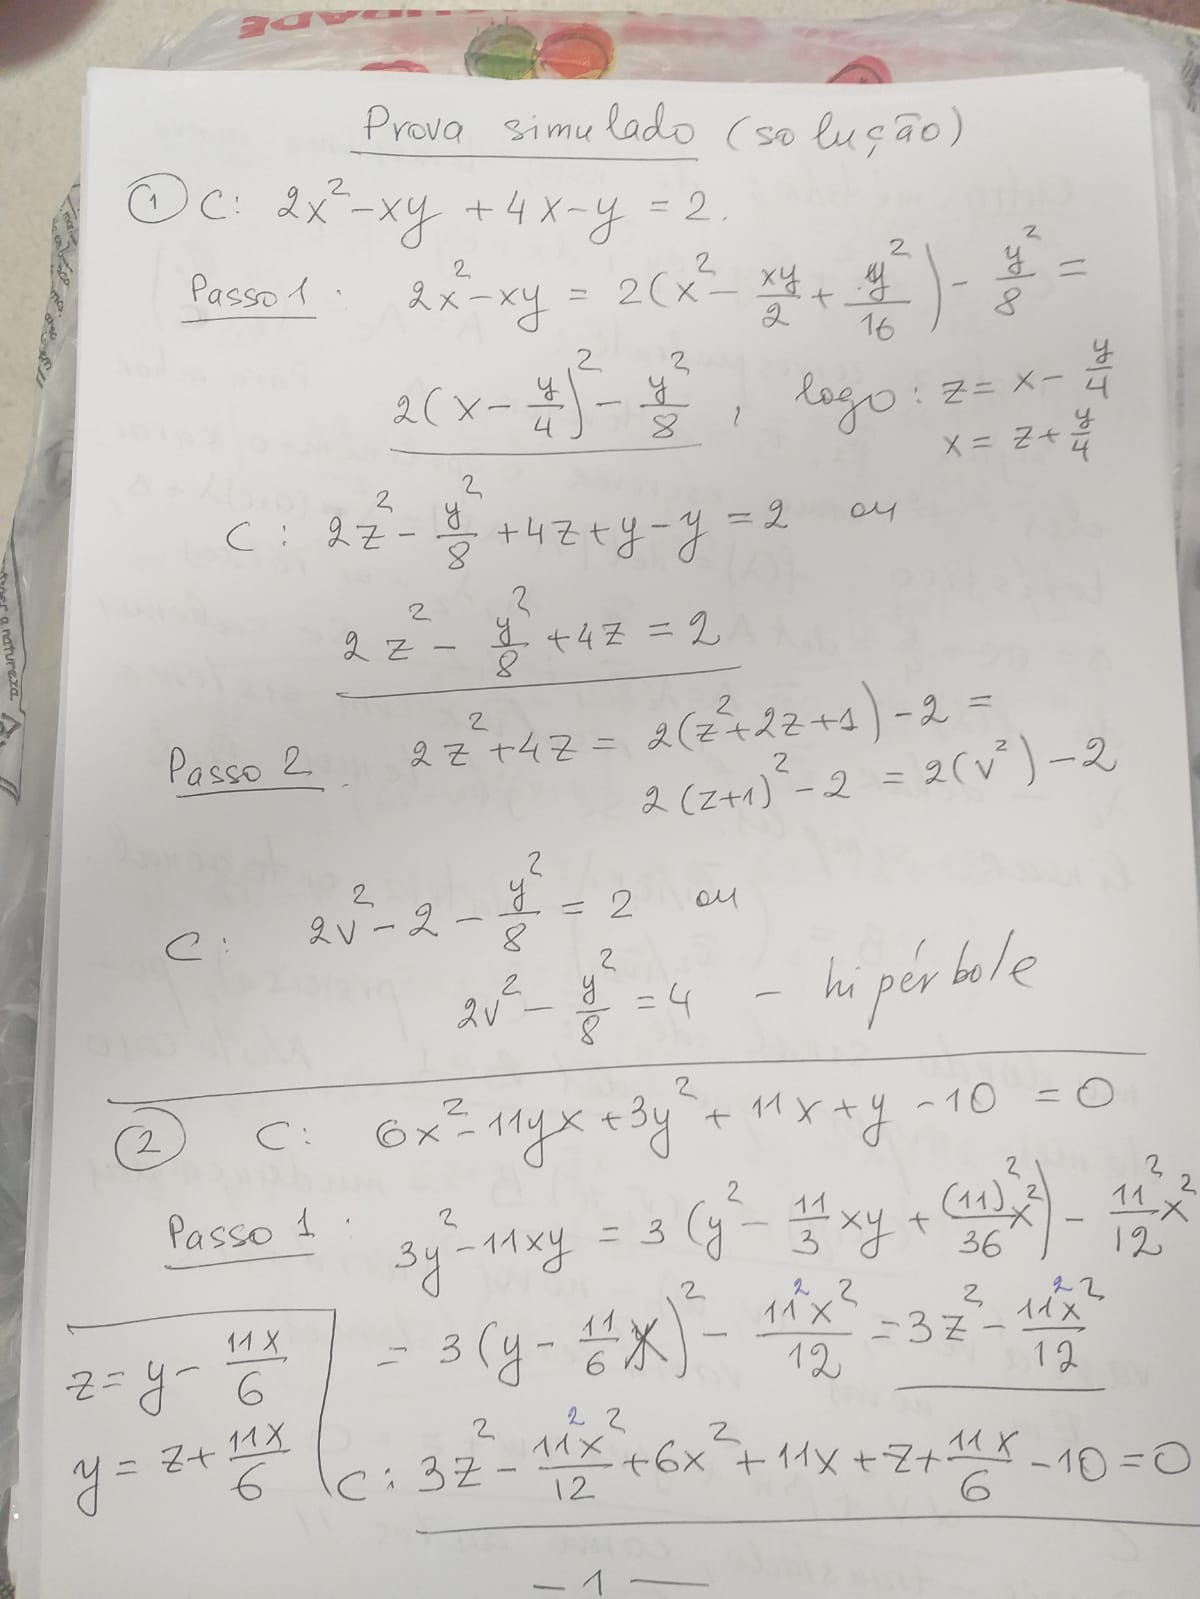 Prova simulado (solução)
① C: 2x² - xy + 4x - y = 2.
Passo 1: 2x² - xy = 2(x² - xy/2 + y²/16) - y²/8 =
2(x - y/4)² - y²/8, logo: z = x - y/4
x = z + y/4
C: 2z² - y²/8 + 4z + y - y = 2 ou
2z² - y²/8 + 4z = 2
Passo 2. 2z² + 4z = 2(z² + 2z + 1) - 2 =
2(z+1)² - 2 = 2(v²) - 2
C: 2v² - 2 - y²/8 = 2 ou
2v² - y²/8 = 4 - hipérbole
② C: 6x² - 11yx + 3y² + 11x + y - 10 = 0
Passo 1: 3y² - 11xy = 3(y² - 11/3 xy + (11)²/36 x²) - 11²/12 x²
= 3(y - 11/6 x)² - 11²x²/12 = 3z² - 11²x²/12
z = y - 11x/6
y = z + 11x/6
C: 3z² - 11²x²/12 + 6x² + 11x + z + 11x/6 - 10 = 0
- 1 -
DADE
a natureza